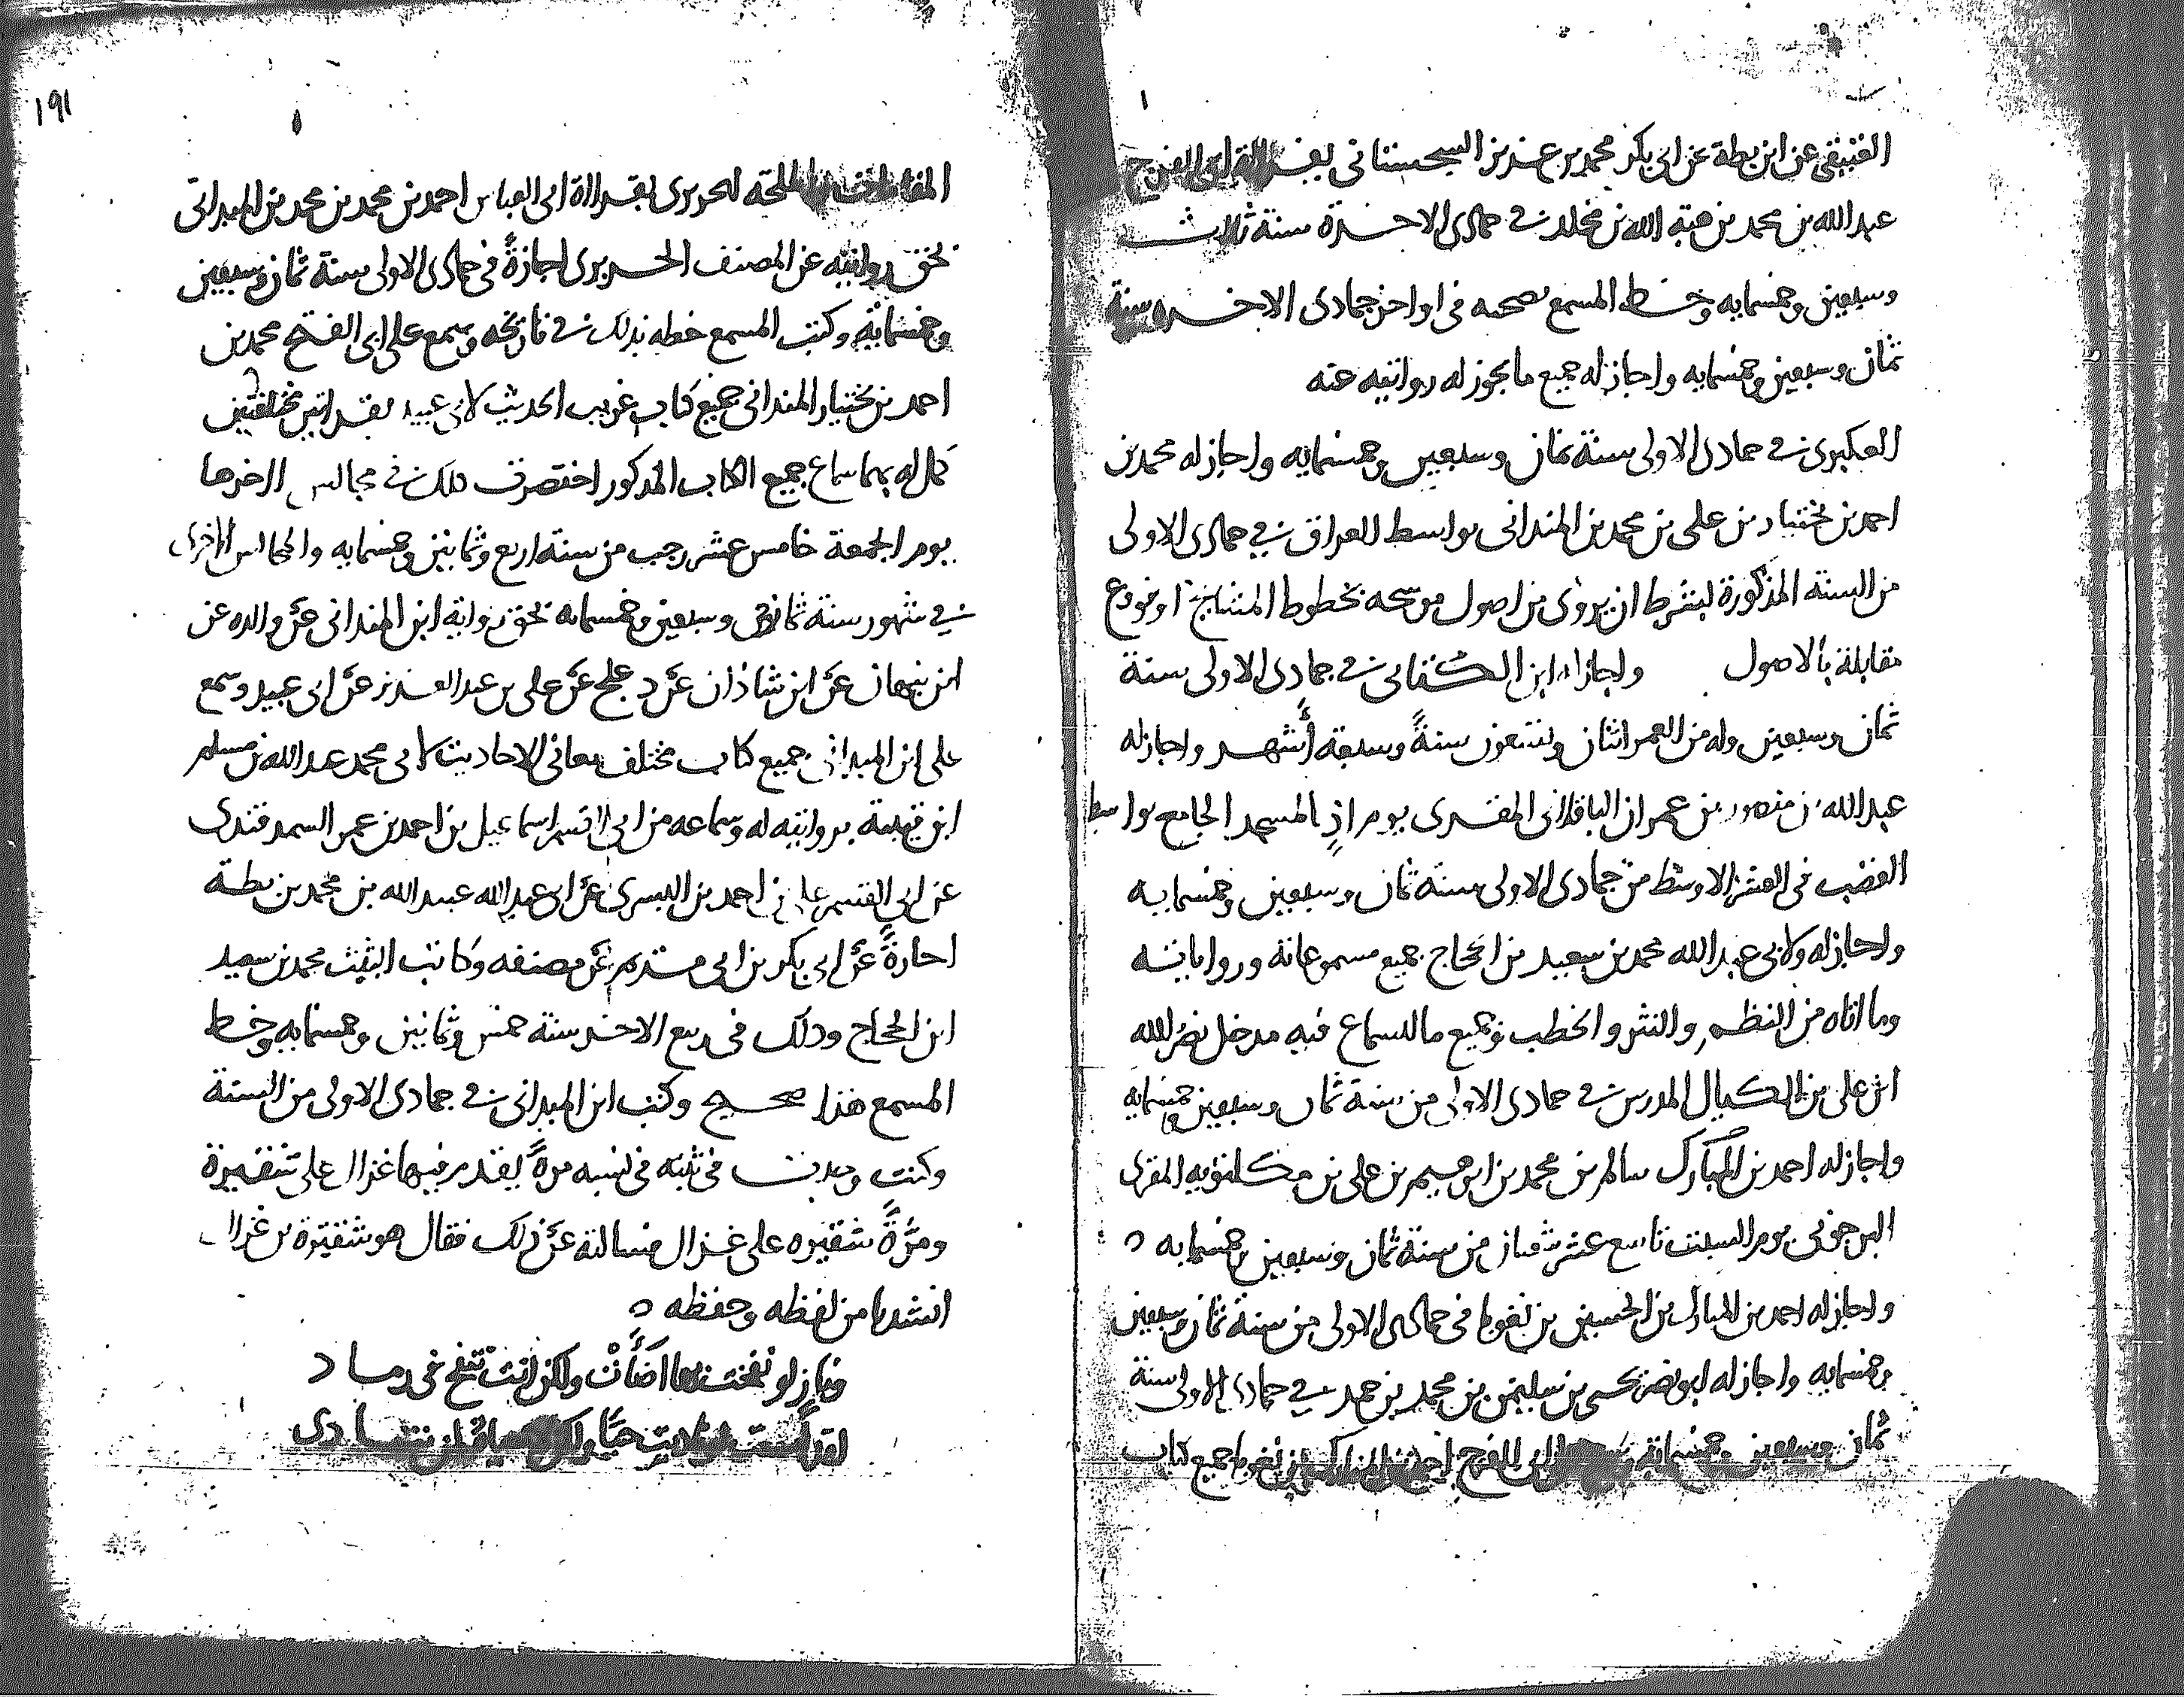 العتيقي عن ابن بطة عن ابى بكر محمد بن عزيز السجستانى بقراة ابى الفرج
عبدالله بن محمد بن هبة الله بن مخلد فى جمادى الاخرة سنة ثلاث
وسبعين وخمسمايه وخط المسمع صحبه فى اواخر جمادى الاخره سنة
ثمان وسبعين وخمسمايه واجاز له جميع ما يجوز له روايته عنه
العكبرى فى جمادى الاولى سنة ثمان وسبعين وخمسمايه واجاز له محمد بن
احمد بن بختيار بن على بن محمد بن المندانى بواسط العراق فى جمادى الاولى
من السنة المذكورة بشرط ان يروى من اصول موشحه بخطوط المشايخ او فروع
مقابلة بالاصول واجاز له ابن الكتانى فى جمادى الاولى سنة
ثمان وسبعين وله من العمر اثنان وتسعون سنةً وسبعة أشهر واجاز له
عبدالله بن منصور بن عمران الباقلانى المقرى يومئذٍ المسجد الجامع بواسط
القصب فى العشر الاوسط من جمادى الاولى سنة ثمان وسبعين وخمسمايه
واجاز له ولابى عبدالله محمد بن سعيد بن الحجاج جميع مسموعاته ورواياته
وما اتاه من النظم والنثر والخطب وجميع ما للسماع فيه مدخل نصرالله
ابن على بن الكيال المدرس فى جمادى الاولى من سنة ثمان وسبعين وخمسمايه
واجاز له احمد بن المبارك سالم بن محمد بن ابرهيم بن على بن مكلنويه المقرى
البرجونى يوم السبت تاسع عشر شعبان من سنة ثمان وسبعين وخمسمايه ٥
واجاز له احمد بن المبارك بن الحسين بن نغوبا فى جمادى الاولى من سنة ثمان وسبعين
وخمسمايه واجاز له ابو نصر يحيى بن سليمن بن محمد بن حمد فى جمادى الاولى سنة
ثمان وسبعين وخمسمائة ابى الفرج احمد بن المبارك بن نغوبا جميع كتاب
١٩١
المقامات الملحة للحريرى بقراة ابى العباس احمد بن محمد بن محمد بن الميدانى
بحق روايته عن المصنف الحريرى اجازةً فى جمادى الاولى سنة ثمان وسبعين
وخمسمائة وكتب المسمع خطه بذلك فى تاريخه وسمع على ابى الفتح محمد بن
احمد بن بختيار المندانى جميع كتاب غريب الحديث لابى عبيد بقراتين مختلفتين
كمل له بهما سماع جميع الكتاب المذكور اختصرت ذلك فى مجالس اخرها
يوم الجمعة خامس عشر رجب من سنة اربع وثمانين وخمسمايه والمجالس الاخرى
فى شهور سنة ثمان وسبعين وخمسمايه بحق رواية ابن المندانى عن والده عن
ابن نبهان عن ابن شاذان عن دعلج عن على بن عبدالعزيز عن ابى عبيد وسمع
على ابن الميدانى جميع كتاب مختلف معانى الاحاديث لابى محمد عبدالله بن مسلم
ابن قتيبة بروايته له وسماعه من ابى القسم اسماعيل بن احمد بن عمر السمرقندى
عن ابى القسم على بن احمد بن البسرى عن ابى عبدالله عبيدالله بن محمد بن بطة
اجازةً عن ابى بكر بن ابى مسدم عن مصنفه وكاتب الثبت محمد بن سعيد
ابن الحجاج وذلك فى ربيع الاخر سنة خمس وثمانين وخمسمايه وخط
المسمع هذا صحيح وكتب ابن الميدانى فى جمادى الاولى من السنة
وكنت وجدت فى ثبته فى نسبه مرةً يقدم فيها غزال على شنقيرة
ومرّةً شنقيره على غزال فسالته عن ذلك فقال هو شنقيرة بن غزال
انشدنا من لفظه وحفظه ٥
ونار لو نفخت بها اضأتْ ولكن انت تنفخ فى رماد
لقد أسمعت لو ناديت حيًّا ولكن لا حياة لمن تنادى